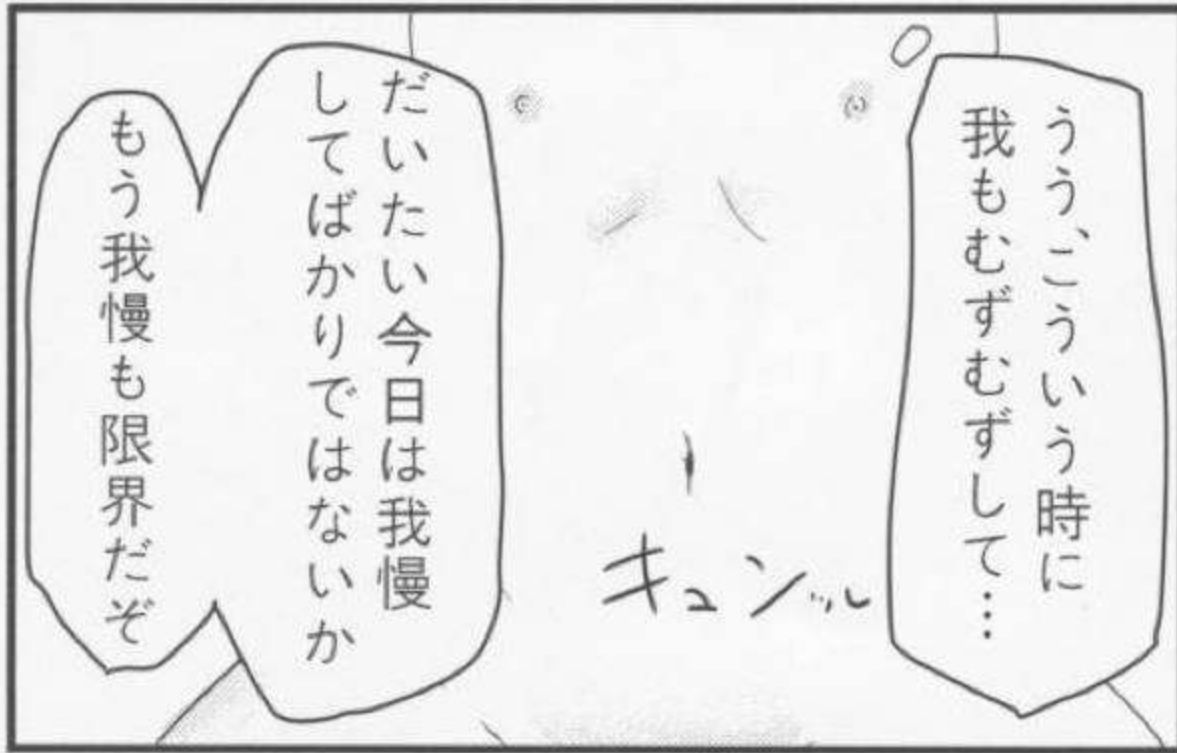 うう、こういう時に
我もむずむずして…
キュンッ
だいたい今日は我慢
してばかりではないか
もう我慢も限界だぞ